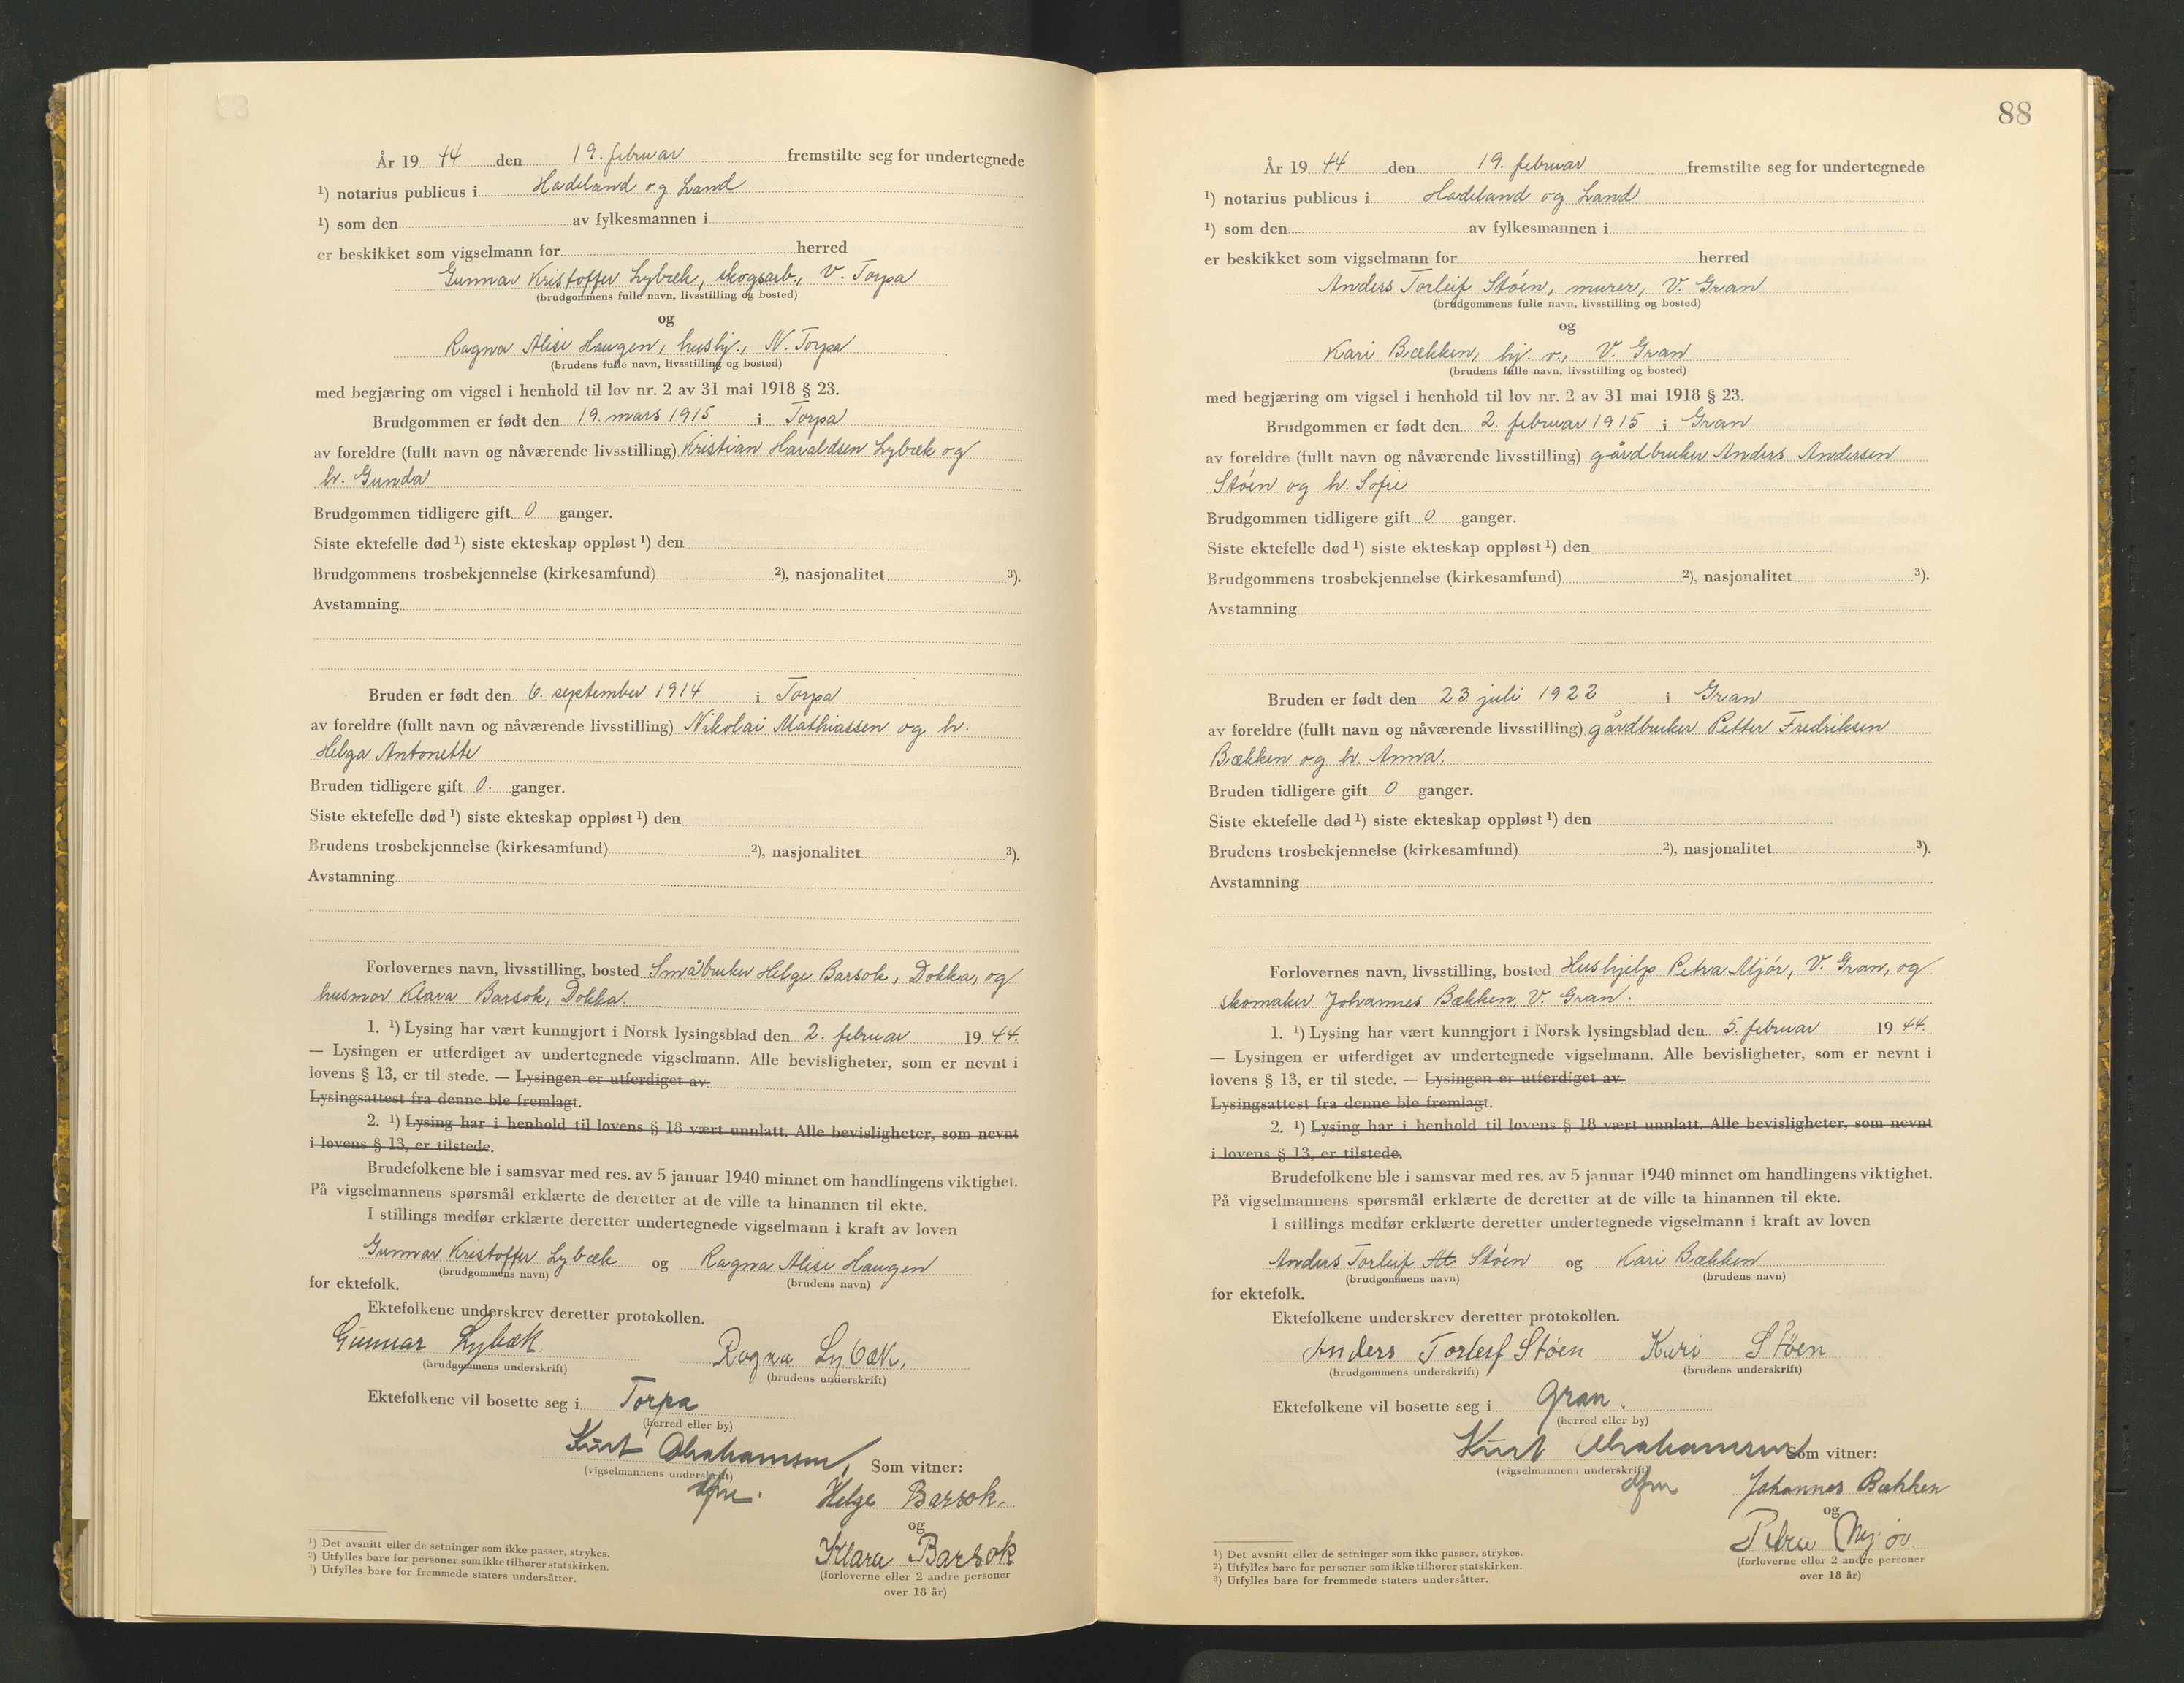 År 19 44 den 19. februar fremstilte seg for undertegnede
¹) notarius publicus i Hadeland og Land
¹) som den av fylkesmannen i
er beskikket som vigselmann for herred
Gunnar Kristoffer Lybæk, skogsarb., V. Torpa
(brudgommens fulle navn, livsstilling og bosted)
og
Ragna Alise Haugen, hushj., N. Torpa
(brudens fulle navn, livsstilling og bosted)
med begjæring om vigsel i henhold til lov nr. 2 av 31 mai 1918 § 23.
Brudgommen er født den 19. mars 1915 i Torpa
av foreldre (fullt navn og nåværende livsstilling) Kristian Haraldsen Lybæk og
h. Gunda
Brudgommen tidligere gift 0 ganger.
Siste ektefelle død ¹) siste ekteskap oppløst ¹) den
Brudgommens trosbekjennelse (kirkesamfund) ²), nasjonalitet ³).
Avstamning
Bruden er født den 6. september 1914 i Torpa
av foreldre (fullt navn og nåværende livsstilling) Nikolai Mathiassen og h.
Helga Antonette
Bruden tidligere gift 0. ganger.
Siste ektefelle død ¹) siste ekteskap oppløst ¹) den
Brudens trosbekjennelse (kirkesamfund) ²), nasjonalitet ³).
Avstamning
Forlovernes navn, livsstilling, bosted Småbruker Helge Barsok, Dokka, og
husmor Klara Barsok, Dokka.
1. ¹) Lysing har vært kunngjort i Norsk lysingsblad den 2. februar 19 44.
— Lysingen er utferdiget av undertegnede vigselmann. Alle bevisligheter, som er nevnt i
lovens § 13, er til stede. — Lysingen er utferdiget av
Lysingsattest fra denne ble fremlagt.
2. ¹) Lysing har i henhold til lovens § 18 vært unnlatt. Alle bevisligheter, som nevnt
i lovens § 13, er tilstede.
Brudefolkene ble i samsvar med res. av 5 januar 1940 minnet om handlingens viktighet.
På vigselmannens spørsmål erklærte de deretter at de ville ta hinannen til ekte.
I stillings medfør erklærte deretter undertegnede vigselmann i kraft av loven
Gunnar Kristoffer Lybæk og Ragna Alise Haugen
(brudgommens navn) (brudens navn)
for ektefolk.
Ektefolkene underskrev deretter protokollen.
Gunnar Lybæk Ragna Lybæk.
(brudgommens underskrift) (brudens underskrift)
Ektefolkene vil bosette seg i Torpa
(herred eller by)
Kurt Abrahamsen,
(vigselmannens underskrift) Som vitner:
Helge Barsok.
og
Klara Barsok
(forloverne eller 2 andre personer
over 18 år)
¹) Det avsnitt eller de setninger som ikke passer, strykes.
²) Utfylles bare for personer som ikke tilhører statskirken.
³) Utfylles bare for fremmede staters undersåtter.
88
År 19 44 den 19. februar fremstilte seg for undertegnede
¹) notarius publicus i Hadeland og Land
¹) som den av fylkesmannen i
er beskikket som vigselmann for herred
Anders Torleif Stóen, murer, V. Gran
(brudgommens fulle navn, livsstilling og bosted)
og
Kari Bækken, hj. v., V. Gran
(brudens fulle navn, livsstilling og bosted)
med begjæring om vigsel i henhold til lov nr. 2 av 31 mai 1918 § 23.
Brudgommen er født den 2. februar 1915 i Gran
av foreldre (fullt navn og nåværende livsstilling) gårdbruker Anders Andersen
Stóen og h. Sofie
Brudgommen tidligere gift 0 ganger.
Siste ektefelle død ¹) siste ekteskap oppløst ¹) den
Brudgommens trosbekjennelse (kirkesamfund) ²), nasjonalitet ³).
Avstamning
Bruden er født den 23. juli 1922 i Gran
av foreldre (fullt navn og nåværende livsstilling) gårdbruker Petter Fredriksen
Bækken og h. Anna.
Bruden tidligere gift 0 ganger.
Siste ektefelle død ¹) siste ekteskap oppløst ¹) den
Brudens trosbekjennelse (kirkesamfund) ²), nasjonalitet ³).
Avstamning
Forlovernes navn, livsstilling, bosted Hushjelp Petra Mjór, V. Gran, og
skomaker Johannes Bækken, V. Gran.
1. ¹) Lysing har vært kunngjort i Norsk lysingsblad den 5. februar 19 44.
— Lysingen er utferdiget av undertegnede vigselmann. Alle bevisligheter, som er nevnt i
lovens § 13, er til stede. — Lysingen er utferdiget av
Lysingsattest fra denne ble fremlagt.
2. ¹) Lysing har i henhold til lovens § 18 vært unnlatt. Alle bevisligheter, som nevnt
i lovens § 13, er tilstede.
Brudefolkene ble i samsvar med res. av 5 januar 1940 minnet om handlingens viktighet.
På vigselmannens spørsmål erklærte de deretter at de ville ta hinannen til ekte.
I stillings medfør erklærte deretter undertegnede vigselmann i kraft av loven
Anders Torleif Stóen og Kari Bækken
(brudgommens navn) (brudens navn)
for ektefolk.
Ektefolkene underskrev deretter protokollen.
Anders Torleif Stóen Kari Støen
(brudgommens underskrift) (brudens underskrift)
Ektefolkene vil bosette seg i Gran.
(herred eller by)
Kurt Abrahamsen Som vitner:
(vigselmannens underskrift)
Johannes Bækken
og
Petra Mjór
(forloverne eller 2 andre personer
over 18 år)
¹) Det avsnitt eller de setninger som ikke passer, strykes.
²) Utfylles bare for personer som ikke tilhører statskirken.
³) Utfylles bare for fremmede staters undersåtter.